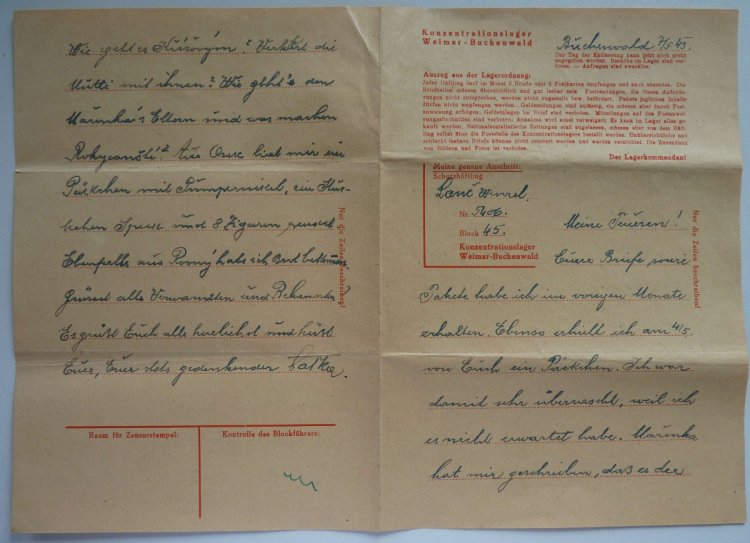 Konzentrationslager
Weimar-Buchenwald
Buchenwald 7/5.43.
Der Tag der Entlassung kann jetzt noch nicht
angegeben werden. Besuche im Lager sind ver-
boten. — Anfragen sind zwecklos.
Auszug aus der Lagerordnung:
Jeder Häftling darf im Monat 2 Briefe oder 2 Postkarten empfangen und auch absenden. Die
Briefzeilen müssen übersichtlich und gut lesbar sein. Postsendungen, die diesen Anforde-
rungen nicht entsprechen, werden nicht zugestellt bzw. befördert. Pakete jeglichen Inhalts
dürfen nicht empfangen werden. Geldsendungen sind zulässig, sie müssen aber durch Post-
anweisung erfolgen; Geldeinlagen im Brief sind verboten. Mitteilungen auf den Postanwei-
sungsabschnitten sind verboten; Annahme wird sonst verweigert. Es kann im Lager alles ge-
kauft werden. Nationalsozialistische Zeitungen sind zugelassen, müssen aber von dem Häft-
ling selbst über die Poststelle des Konzentrationslagers bestellt werden. Unübersichtliche und
schlecht lesbare Briefe können nicht zensiert werden und werden vernichtet. Die Zusendung
von Bildern und Fotos ist verboten.
Der Lagerkommandant
Meine genaue Anschrift:
Schutzhäftling
Nr.
Block 45.
Konzentrationslager
Weimar-Buchenwald
Nur die Zeilen beschreiben!
Meine Teueren!
Euere Briefe, sowie
Pakete habe ich im vorigen Monate
erhalten. Ebenso erhielt ich am 4/5
von Euch ein Päckchen. Ich war
damit sehr überrascht, weil ich
es nicht erwartet habe. Mařenka
hat mir geschrieben, dass es der
Wie geht es Křížovým? Verkehrt die
Mutti mit ihnen? Wie geht's den
Mařenka's Eltern und was machen
Rokycanští? Aus hieb mir ein
Päckchen mit Pumpernikel, ein Stück-
chen Speck und 8 Zigaren gesandt
Ebenfalls aus habe ich Brot bekommen
Grüsset alle Verwandten und Bekannten
Es grüßt Euch alle herzlichst und küsst
Euer, Euer stets gedenkender Vatka.
Nur die Zeilen beschreiben!
Raum für Zensurstempel:
Kontrolle des Blockführers: